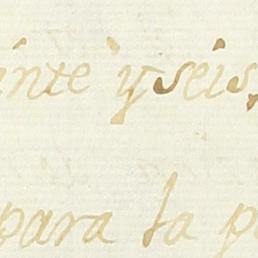 inte y seis,
para la p